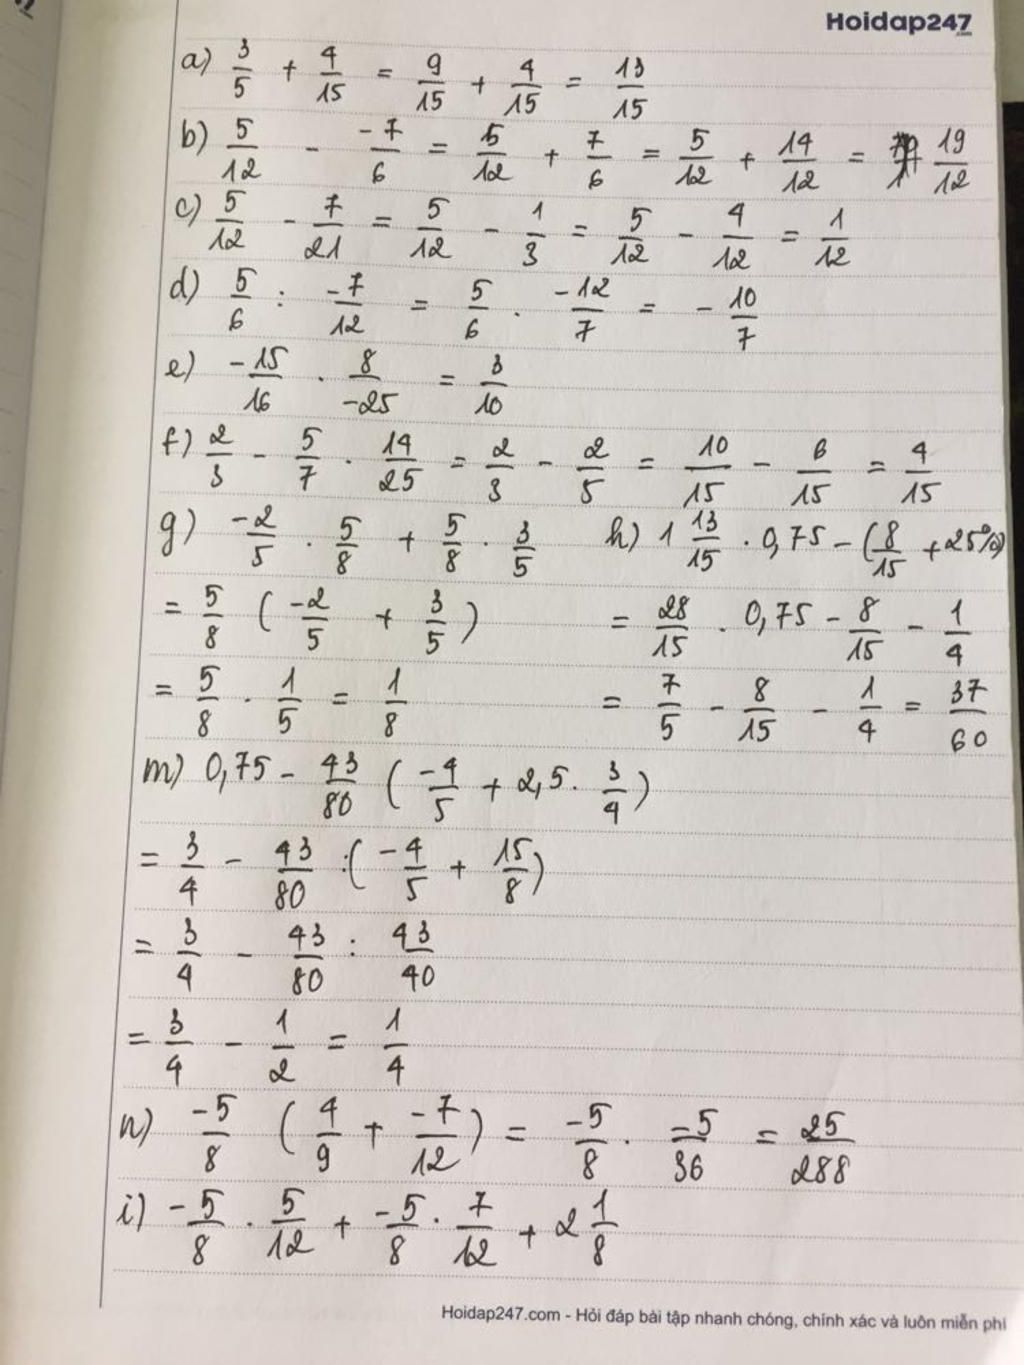 Hoidap247.com
a) 3/5 + 4/15 = 9/15 + 4/15 = 13/15
b) 5/12 - -7/6 = 5/12 + 7/6 = 5/12 + 14/12 = 19/12
c) 5/12 - 7/21 = 5/12 - 1/3 = 5/12 - 4/12 = 1/12
d) 5/6 : -7/12 = 5/6 . -12/7 = - 10/7
e) -15/16 . 8/-25 = 3/10
f) 2/3 - 5/7 . 14/25 = 2/3 - 2/5 = 10/15 - 6/15 = 4/15
g) -2/5 . 5/8 + 5/8 . 3/5
= 5/8 (-2/5 + 3/5)
= 5/8 . 1/5 = 1/8
h) 1 13/15 . 0,75 - (8/15 + 25%)
= 28/15 . 0,75 - 8/15 - 1/4
= 7/5 - 8/15 - 1/4 = 37/60
m) 0,75 - 43/80 (-4/5 + 2,5 . 3/4)
= 3/4 - 43/80 :(-4/5 + 15/8)
= 3/4 - 43/80 : 43/40
= 3/4 - 1/2 = 1/4
n) -5/8 (4/9 + -7/12) = -5/8 . -5/36 = 25/288
i) -5/8 . 5/12 + -5/8 . 7/12 + 2 1/8
Hoidap247.com - Hỏi đáp bài tập nhanh chóng, chính xác và luôn miễn phí